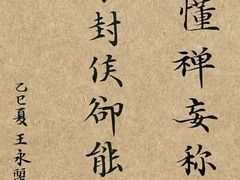 懂禅妄称
封侯卻能
乙巳夏王永